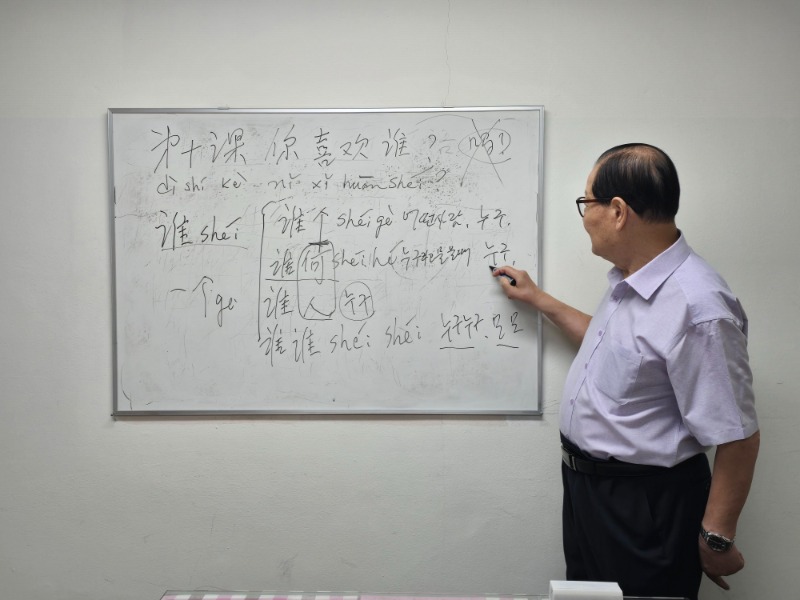 第十课 你喜欢谁?
dì shí kè nǐ xǐ huān shéi?
谁 shéi
谁个 shéi gè 어떤사람, 누구.
谁何 shéi hé 누구 누구.
一个 gè
谁人 누구
谁谁 shéi shéi 누구누구. 모모